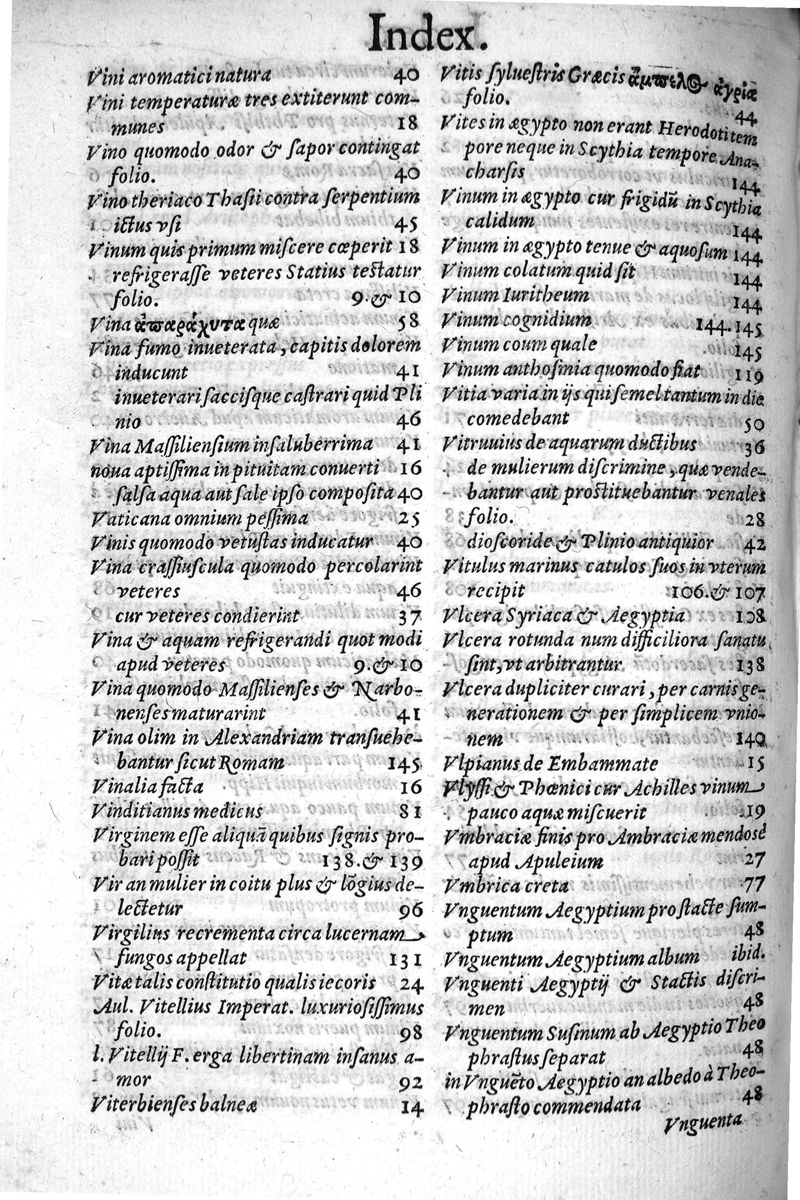 Index.
Vini aromatici natura 40
Vini temperaturæ tres extiterunt com-
munes 18
Vino quomodo odor & sapor contingat
folio. 40
Vino theriaco Thasii contra serpentium
ictus vsi 45
Vinum quis primum miscere cœperit 18
refrigerasse veteres Statius testatur
folio. 9.& 10
Vina ἀπαράχυτα quæ 58
Vina fumo inueterata, capitis dolorem
inducunt 41
inueterari saccisque castrari quid Pli
nio 46
Vina Massiliensium insaluberrima 41
noua aptissima in pituitam conuerti 16
salsa aqua aut sale ipso composita 40
Vaticana omnium pessima 25
Vinis quomodo vetustas inducatur 40
Vina crassiuscula quomodo percolarint
veteres 46
cur veteres condierint 37
Vina & aquam refrigerandi quot modi
apud veteres 9.& 10
Vina quomodo Massilienses & Narbo-
nenses maturarint 41
Vina olim in Alexandriam transuehe-
bantur sicut Romam 145
Vinalia facta 16
Vinditianus medicus 81
Virginem esse aliquã quibus signis pro-
bari possit 138.& 139
Vir an mulier in coitu plus & lõgius de-
lectetur 96
Virgilius recrementa circa lucernam
fungos appellat 131
Vitæ talis constitutio qualis iecoris 24
Aul. Vitellius Imperat. luxuriosissimus
folio. 98
l. Vitellij F. erga libertinam insanus a-
mor 92
Viterbienses balneæ 14
Vitis syluestris Græcis ἄμπελος ἀγρία
folio. 44
Vites in ægypto non erant Herodoti tem
pore neque in Scythia tempore Ana-
charsis 144
Vinum in ægypto cur frigidũ in Scythia
calidum 144
Vinum in ægypto tenue & aquosum 144
Vinum colatum quid sit 144
Vinum Iuritheum 144
Vinum cognidium 144.145
Vinum coum quale 145
Vinum anthosmia quomodo fiat 119
Vitia varia in ijs qui semel tantum in die
comedebant 50
Vitruuius de aquarum ductibus 36
de mulierum discrimine, quæ vende-
bantur aut prostituebantur venales
folio. 28
dioscoride & Plinio antiquior 42
Vitulus marinus catulos suos in vterum
recipit 106.& 107
Vlcera Syriaca & Aegyptia 108
Vlcera rotunda num difficiliora sanatu
sint, vt arbitrantur 138
Vlcera dupliciter curari, per carnis ge-
nerationem & per simplicem vnio-
nem 140
Vlpianus de Embammate 15
Vlyssi & Phœnici cur Achilles vinum
pauco aquæ miscuerit 19
Vmbraciæ finis pro Ambraciæ mendosè
apud Apuleium 27
Vmbrica creta 77
Vnguentum Aegyptium pro stacte sum-
ptum 48
Vnguentum Aegyptium album ibid.
Vnguenti Aegyptij & Stactis discri-
men 48
Vnguentum Susinum ab Aegyptio Theo
phrastus separat 48
in Vnguẽto Aegyptio an albedo à Theo-
phrasto commendata 48
Vnguenta